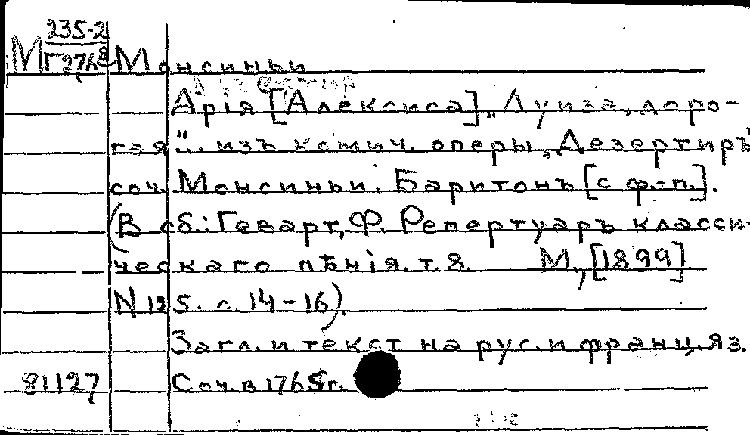 235-2
М Г27к8 Монсиньи
Арія [Алексиса] „Луиза, доро-
гая“... изъ комич. оперы „Дезертиръ
соч. Монсиньи. Баритонъ [с ф.-п.].
(В сб.: Геварт, Ф. Репертуаръ класси-
ческаго пѣнія. т. 8. М., [1899]
N 125. с. 14-16).
Загл. и текст на рус. и франц. яз.
81127 Соч. в 1765г.